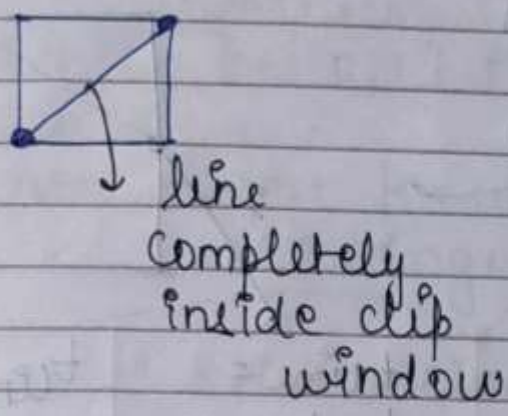 line
completely
inside clip
window